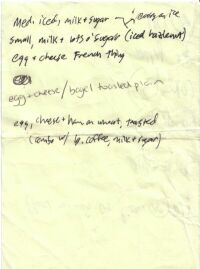 Med. iced, milk + sugar
small, milk + lots o' sugars (iced hazelnut)
egg + cheese French thing
egg + cheese / bagel toasted plain
egg, cheese + ham on wheat, toasted
(combo w/ coffee, milk + sugar)